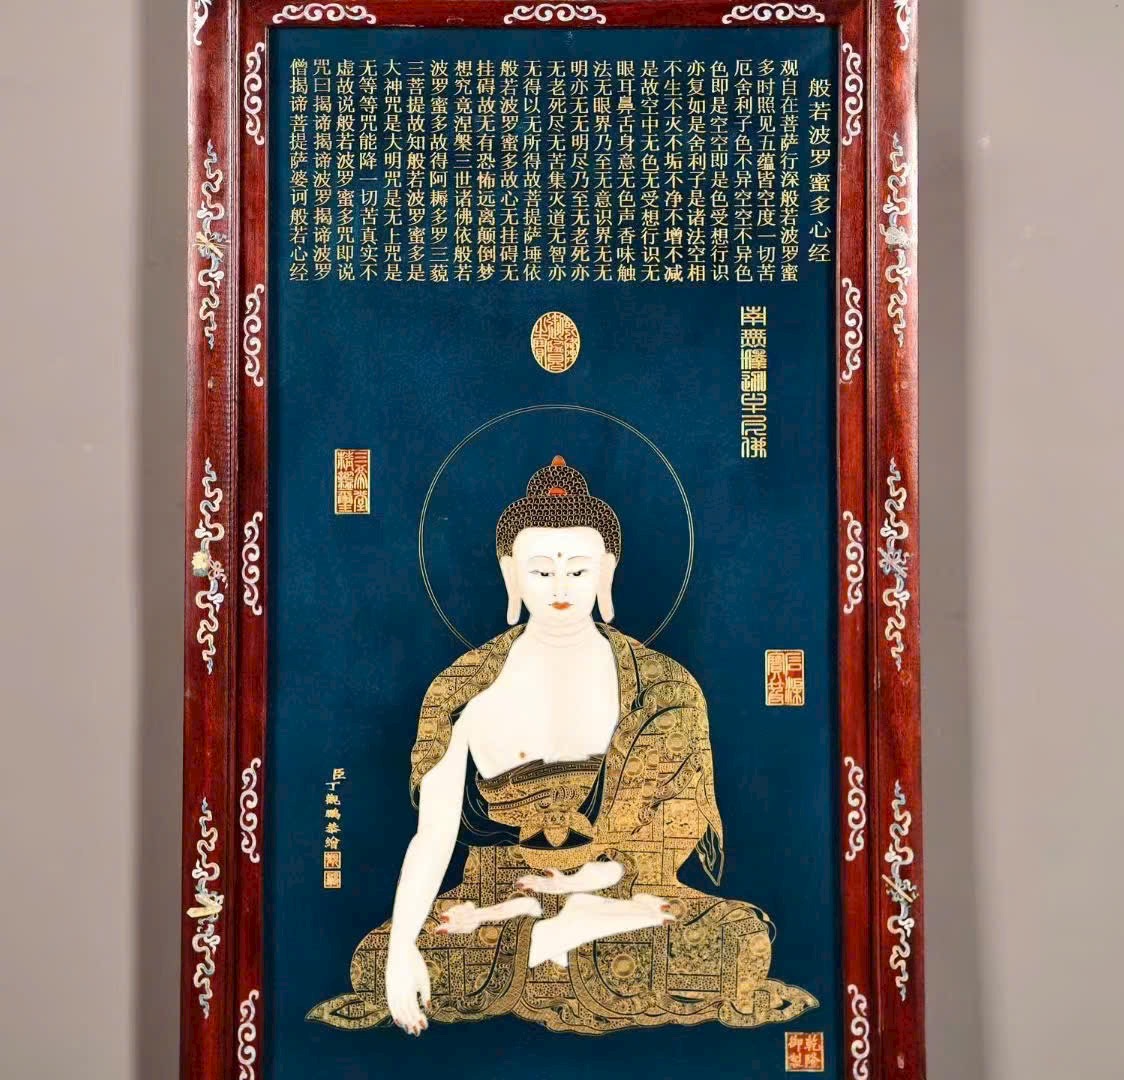 般若波罗蜜多心经
观自在菩萨行深般若波罗蜜
多时照见五蕴皆空度一切苦
厄舍利子色不异空空不异色
色即是空空即是色受想行识
亦复如是舍利子是诸法空相
不生不灭不垢不净不增不减
是故空中无色无受想行识无
眼耳鼻舌身意无色声香味触
法无眼界乃至无意识界无无
明亦无无明尽乃至无老死亦
无老死尽无苦集灭道无智亦
无得以无所得故菩提萨埵依
般若波罗蜜多故心无挂碍无
挂碍故无有恐怖远离颠倒梦
想究竟涅槃三世诸佛依般若
波罗蜜多故得阿耨多罗三藐
三菩提故知般若波罗蜜多是
大神咒是大明咒是无上咒是
无等等咒能降一切苦真实不
虚故说般若波罗蜜多咒即说
咒曰揭谛揭谛波罗揭谛波罗
僧揭谛菩提萨婆诃般若心经
南無釋迦牟尼佛
乾隆御覽之寶
三希堂
精鑑璽
石渠
寶笈
臣丁觀鵬恭繪
乾隆
御製